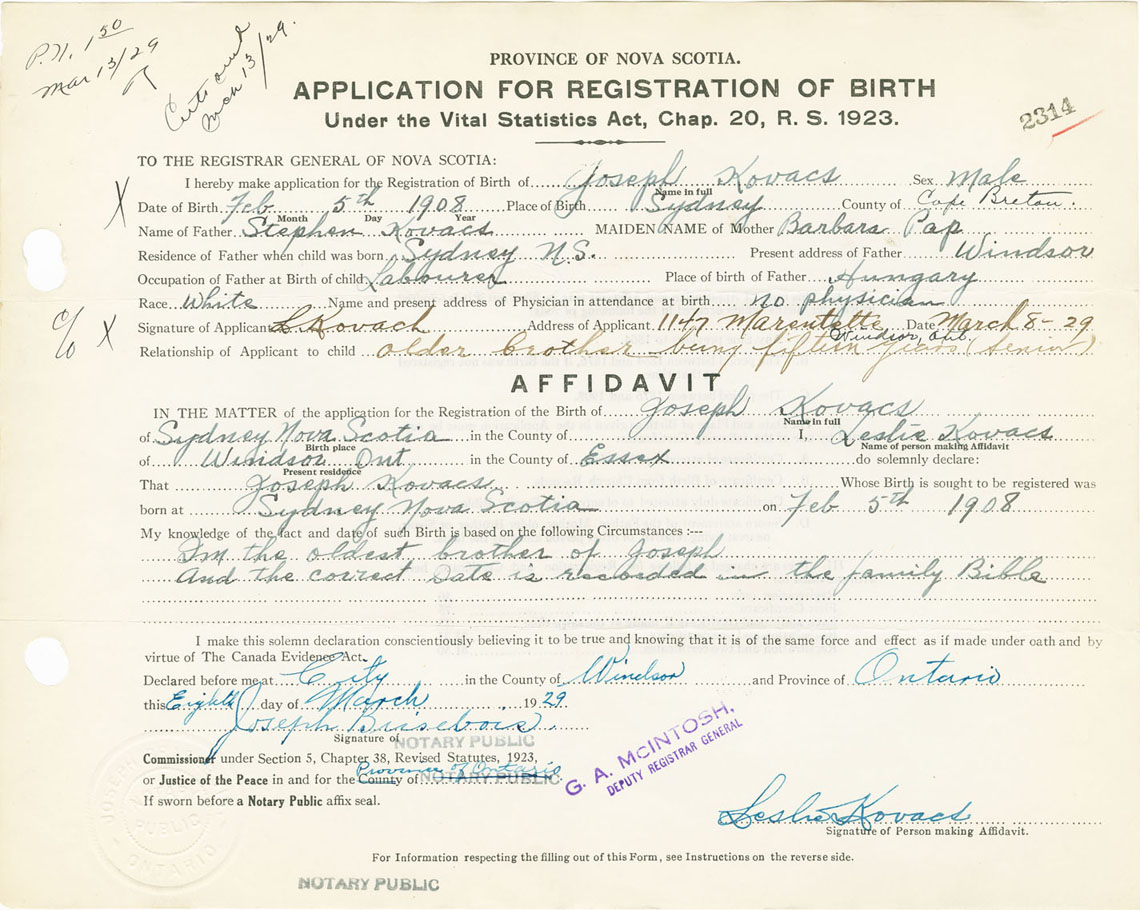 P.N. 1 50
Mar 13/29
Certs and
Mch 13/29.
PROVINCE OF NOVA SCOTIA.
APPLICATION FOR REGISTRATION OF BIRTH
Under the Vital Statistics Act, Chap. 20, R. S. 1923.
2314
TO THE REGISTRAR GENERAL OF NOVA SCOTIA:
I hereby make application for the Registration of Birth of Joseph Kovacs Sex Male
Name in full
X Date of Birth Feb 5th 1908 Place of Birth Sydney County of Cape Breton.
Month Day Year
Name of Father Stephen Kovacs MAIDEN NAME of Mother Barbara Pap
Residence of Father when child was born Sydney N.S. Present address of Father Windsor
Occupation of Father at Birth of child Labourer Place of birth of Father Hungary
Race White Name and present address of Physician in attendance at birth no physician
c/o X Signature of Applicant L Kovach Address of Applicant 1147 Marentette Date March 8-29
Windsor, Ont.
Relationship of Applicant to child older brother being fifteen years (senior)
AFFIDAVIT
IN THE MATTER of the application for the Registration of the Birth of Joseph Kovacs
Name in full
of Sydney Nova Scotia in the County of I, Leslie Kovacs
Birth place Name of person making Affidavit
of Windsor Ont in the County of Essex do solemnly declare:
Present residence
That Joseph Kovacs Whose Birth is sought to be registered was
born at Sydney Nova Scotia on Feb 5th 1908
My knowledge of the fact and date of such Birth is based on the following Circumstances :---
I'm the oldest brother of Joseph
And the correct Date is recorded in the family Bible
I make this solemn declaration conscientiously believing it to be true and knowing that it is of the same force and effect as if made under oath and by
virtue of The Canada Evidence Act.
Declared before me at City in the County of Windsor and Province of Ontario
this Eighth day of March 1929.
Joseph Brisebois.
Signature of
NOTARY PUBLIC
Commissioner under Section 5, Chapter 38, Revised Statutes, 1923,
Province of Ontario
or Justice of the Peace in and for the County of NOTARY PUBLIC
If sworn before a Notary Public affix seal.
G. A. McINTOSH,
DEPUTY REGISTRAR GENERAL
PUBLIC
ONTARIO
Leslie Kovacs
Signature of Person making Affidavit.
For Information respecting the filling out of this Form, see Instructions on the reverse side.
NOTARY PUBLIC